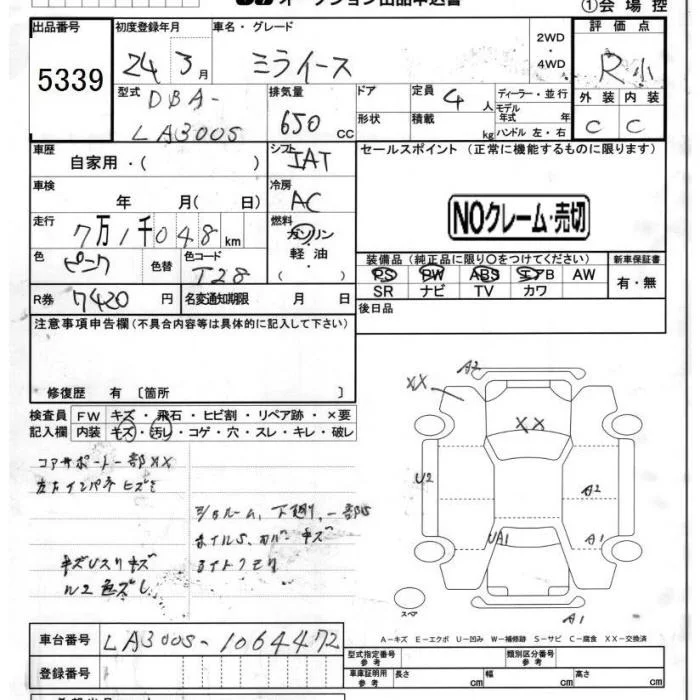 ①会場控
出品番号 初度登録年月 車名・グレード 2WD・4WD 評価点
5339 24 3月 ミライース R小
型式 DBA-LA300S 排気量 650cc ドア 形状 定員 4人 積載 kg ディーラー・並行 モデル年式 年 ハンドル 左・右 外装 内装
C C
車歴 自家用・( ) シフト IAT セールスポイント (正常に機能するものに限ります)
車検 年 月( 日) 冷房 AC
NOクレーム・売切
走行 7万1千048km 燃料 ガソリン・軽油・
色 ピンク 色替 色コード T28
装備品(純正品に限り〇をつけてください) 新車保証書
PS PW ABS エアB AW 有・無
SR ナビ TV カワ
R券 7420円 名変通知期限 月 日
後日品
注意事項申告欄(不具合内容等は具体的に記入して下さい)
修復歴 有〔箇所 〕
検査員記入欄 FW キズ・飛石・ヒビ割・リペア跡・×要
内装 キズ・汚れ・コゲ・穴・スレ・キレ・破レ
コアサポート一部XX
左右インパネヒズミ
下廻り、一部S
ホイルS、カバーキズ
ライトクモリ
A2
XX
XX
U2
A2
UA1
A1
A1
スペア
A-キズ E-エクボ U-凹み W-補修跡 S-サビ C-腐食 XX-交換済
車台番号 LA300S-1064472
登録番号
型式指定番号 参考 類別区分番号 参考
車庫証明用 参考 長さ cm 幅 cm 高さ cm